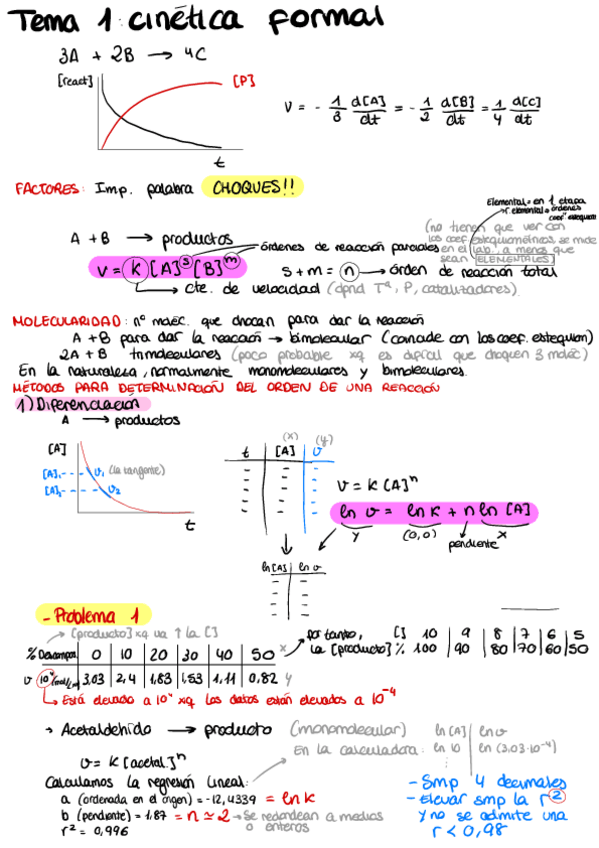 Tema 1: cinética formal
3A + 2B → 4C
[react] [P]
t
V = - 1/3 d[A]/dt = - 1/2 d[B]/dt = 1/4 d[C]/dt
FACTORES: Imp. palabra CHOQUES!!
Elemental = en 1 etapa
A + B → productos
órdenes de reacción parciales
(no tienen que ver con
los coef. estequiométricos, se mide
en el lab., a menos que
sean ELEMENTALES)
V = k [A]^s [B]^m
s + m = n → órden de reacción total
cte. de velocidad (dpnd Tª, P, catalizadores).
MOLECULARIDAD: nº moléc. que chocan para dar la reacción
A + B para dar la reacción → bimolecular (coincide con los coef. estequiom)
2A + B trimoleculares (poco probable xq es difícil que choquen 3 moléc)
En la naturaleza, normalmente monomoleculares y bimoleculares.
MÉTODOS PARA DETERMINACIÓN DEL ORDEN DE UNA REACCIÓN
1) Diferenciación
A → productos
[A]
[A]₁ v₁ (la tangente)
[A]₂ v₂
t
(x) (y)
t [A] v
V = K [A]^n
ln v = ln K + n ln [A]
y (0,0) pendiente x
ln [A] ln v
- Problema 1
→ [producto] xq va ↑ la [ ]
% Descompos. 0 10 20 30 40 50 x
v 10⁴ 3,03 2,4 1,83 1,53 1,11 0,82 y
→ Está elevado a 10⁴ xq los datos están elevados a 10⁻⁴
por tanto, [ ] 10 9 8 7 6 5
la [producto] % 100 90 80 70 60 50
→ Acetaldehído → producto (monomolecular)
ln [A] ln v
En la calculadora: ln 10 ln (3.03·10⁻⁴)
v = K [acetal.]^n
Calculamos la regresión lineal:
a (ordenada en el órigen) = -12,4339 = ln K
b (pendiente) = 1,87 = n ≃ 2 → Se redondean a medios
o enteros
r² = 0,996
- Smp 4 decimales
- Elevar smp la r²
y no se admite una
r < 0,98